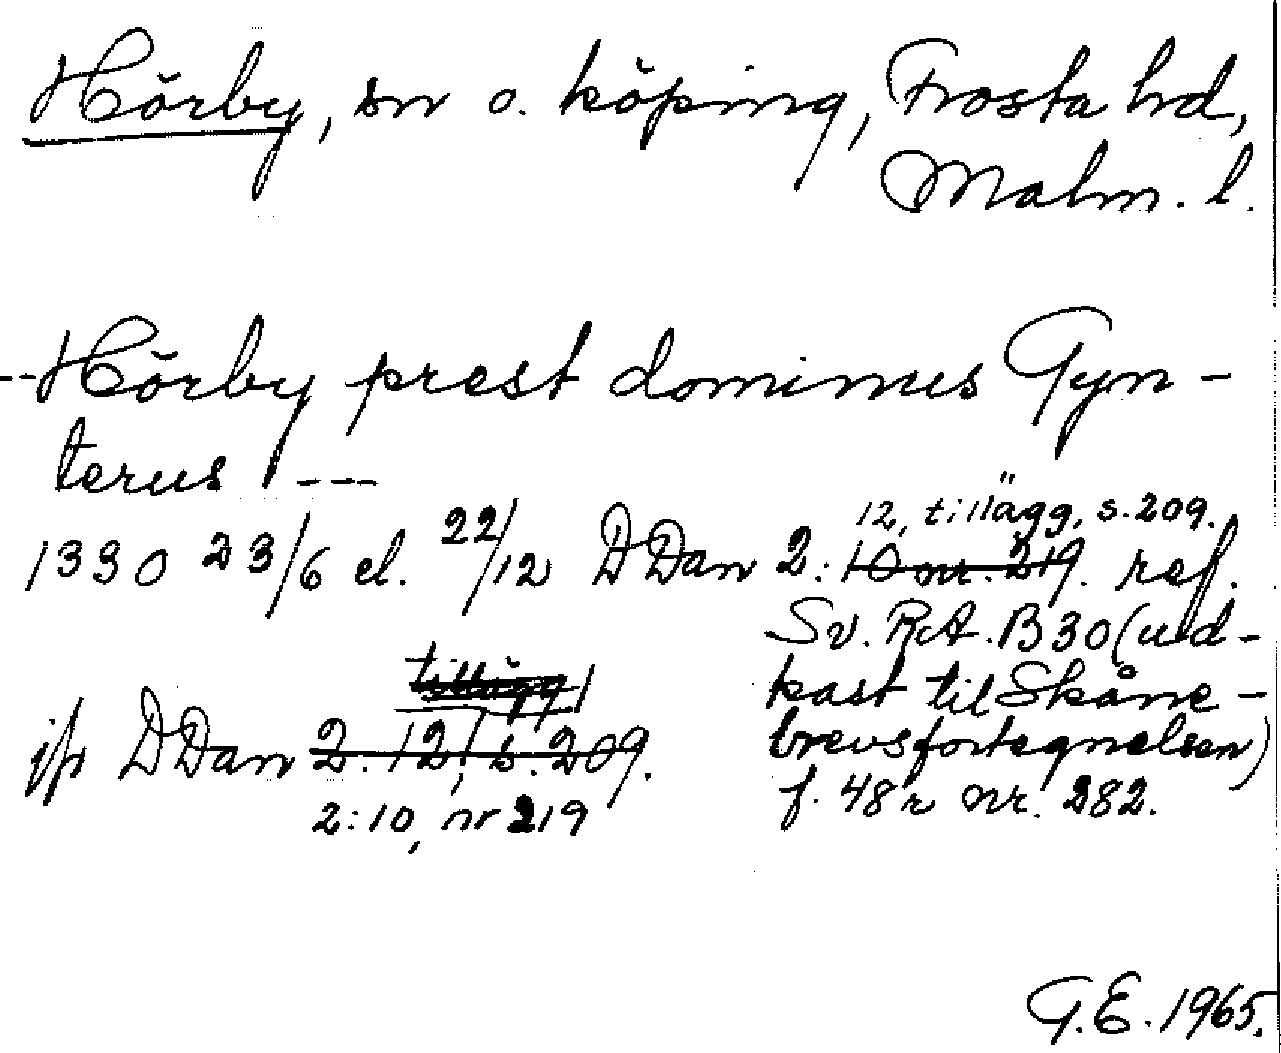 Hörby, sn o. köping, Frosta hd,
Malm. l.
--Hörby prest dominus Gyn-
terus ---
12, tillägg, s. 209.
1330 23/6 el. 22/12 DDan 2: 10 nr. 219. ref.
Sv. RA. B30 (ud-
kast til Skåne-
brevsfortegnelsen)
f. 48 r nr. 282.
tillägg
jfr DDan 2. 12, s. 209.
2:10, nr 219
G.E. 1965.